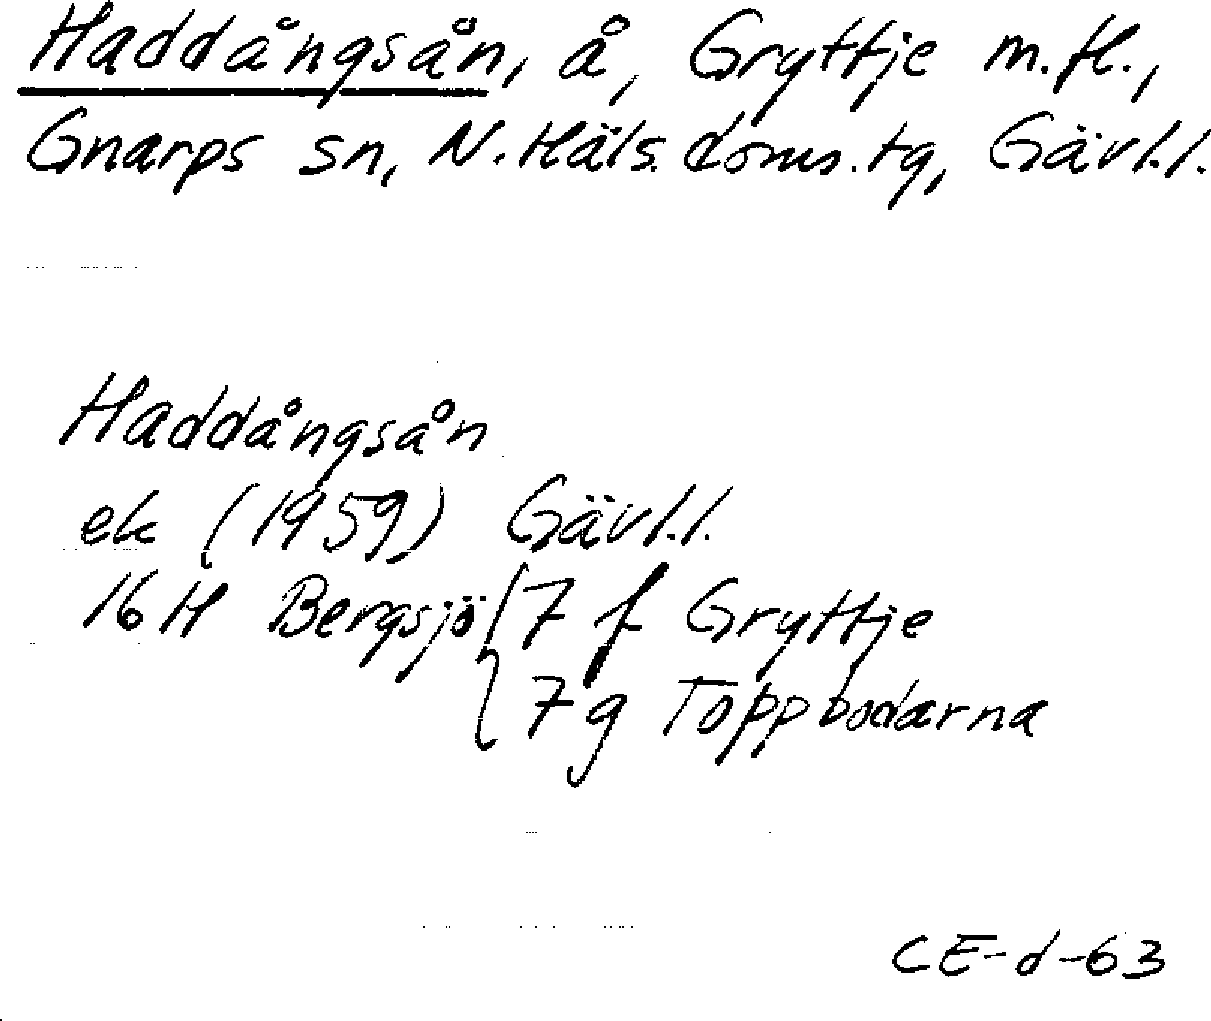 Haddångsån, å, Gryttje m.fl.,
Gnarps sn, N. Häls. doms. tg, Gävl.l.
Haddångsån
ek (1959) Gävl.l.
16H Bergsjö { 7 f Gryttje
7 g Toppbodarna
CE-d-63